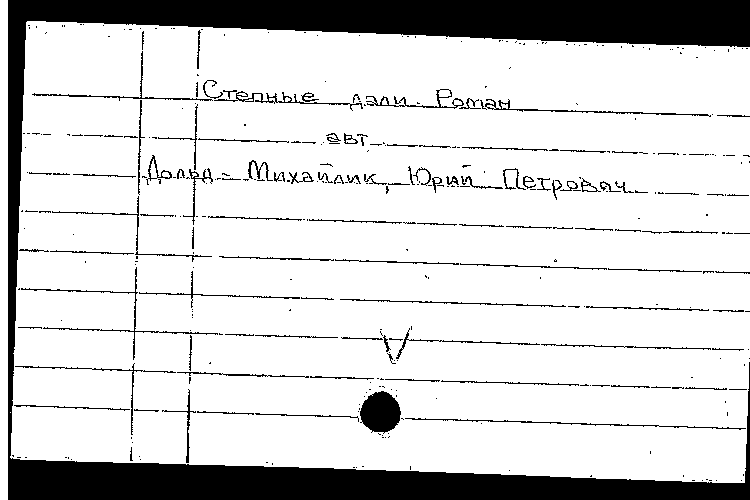 Степные дали. Роман
авт.
Дольд-Михайлик, Юрий Петрович.